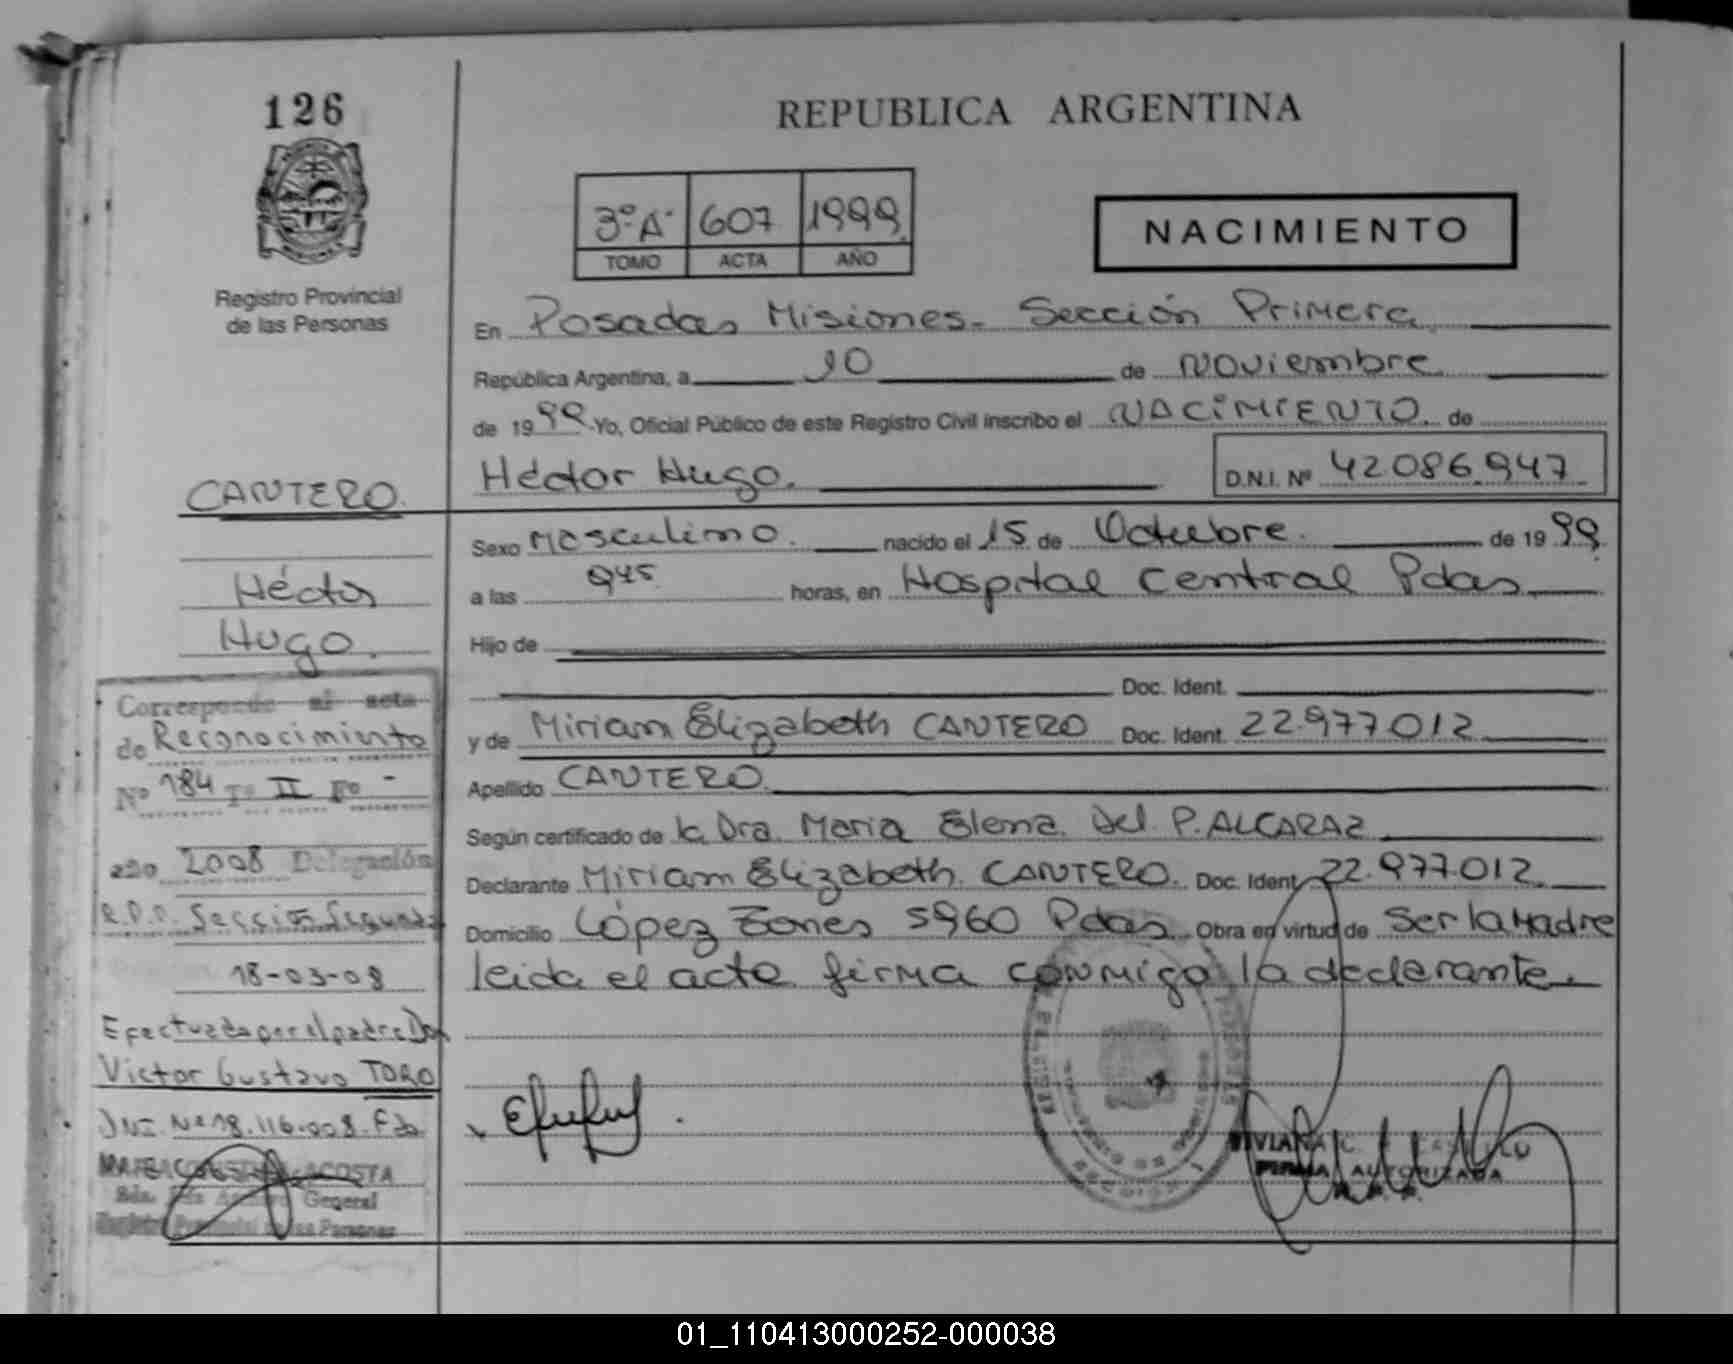 126
REPUBLICA ARGENTINA
3º A 607 1999
TOMO ACTA AÑO
NACIMIENTO
Registro Provincial
de las Personas
En Posadas Misiones - Sección Primera
República Argentina, a 10 de Noviembre
de 1999 Yo, Oficial Público de este Registro Civil inscribo el NACIMIENTO de
Héctor Hugo. D.N.I. Nº 42086947
CANTERO.
Héctor
Hugo.
Sexo Masculino. nacido el 15 de Octubre. de 1999
a las 945 horas, en Hospital Central Pdas
Hijo de
Doc. Ident.
y de Miriam Elizabeth CANTERO Doc. Ident. 22.977.012
Apellido CANTERO
Según certificado de la Dra. Maria Elena Del P. ALCARAZ
Declarante Miriam Elizabeth CANTERO. Doc. Ident 22.977.012
Domicilio López 5960 Pdas Obra en virtud de Ser la Madre
leida el acta firma conmigo la declarante
Corresponde al acta
de Reconocimiento
Nº 184 Tº II Fº -
año 2008 Delegación
R.P.P. Sección Segunda
18-03-08
Efectuada por el padre Don
Victor Gustavo TORO
DNI. Nº 18.116.008. Fdo
ACOSTA
General
Personas
VIVIANA C.
FIRMA AUTORIZADA
01_110413000252-000038